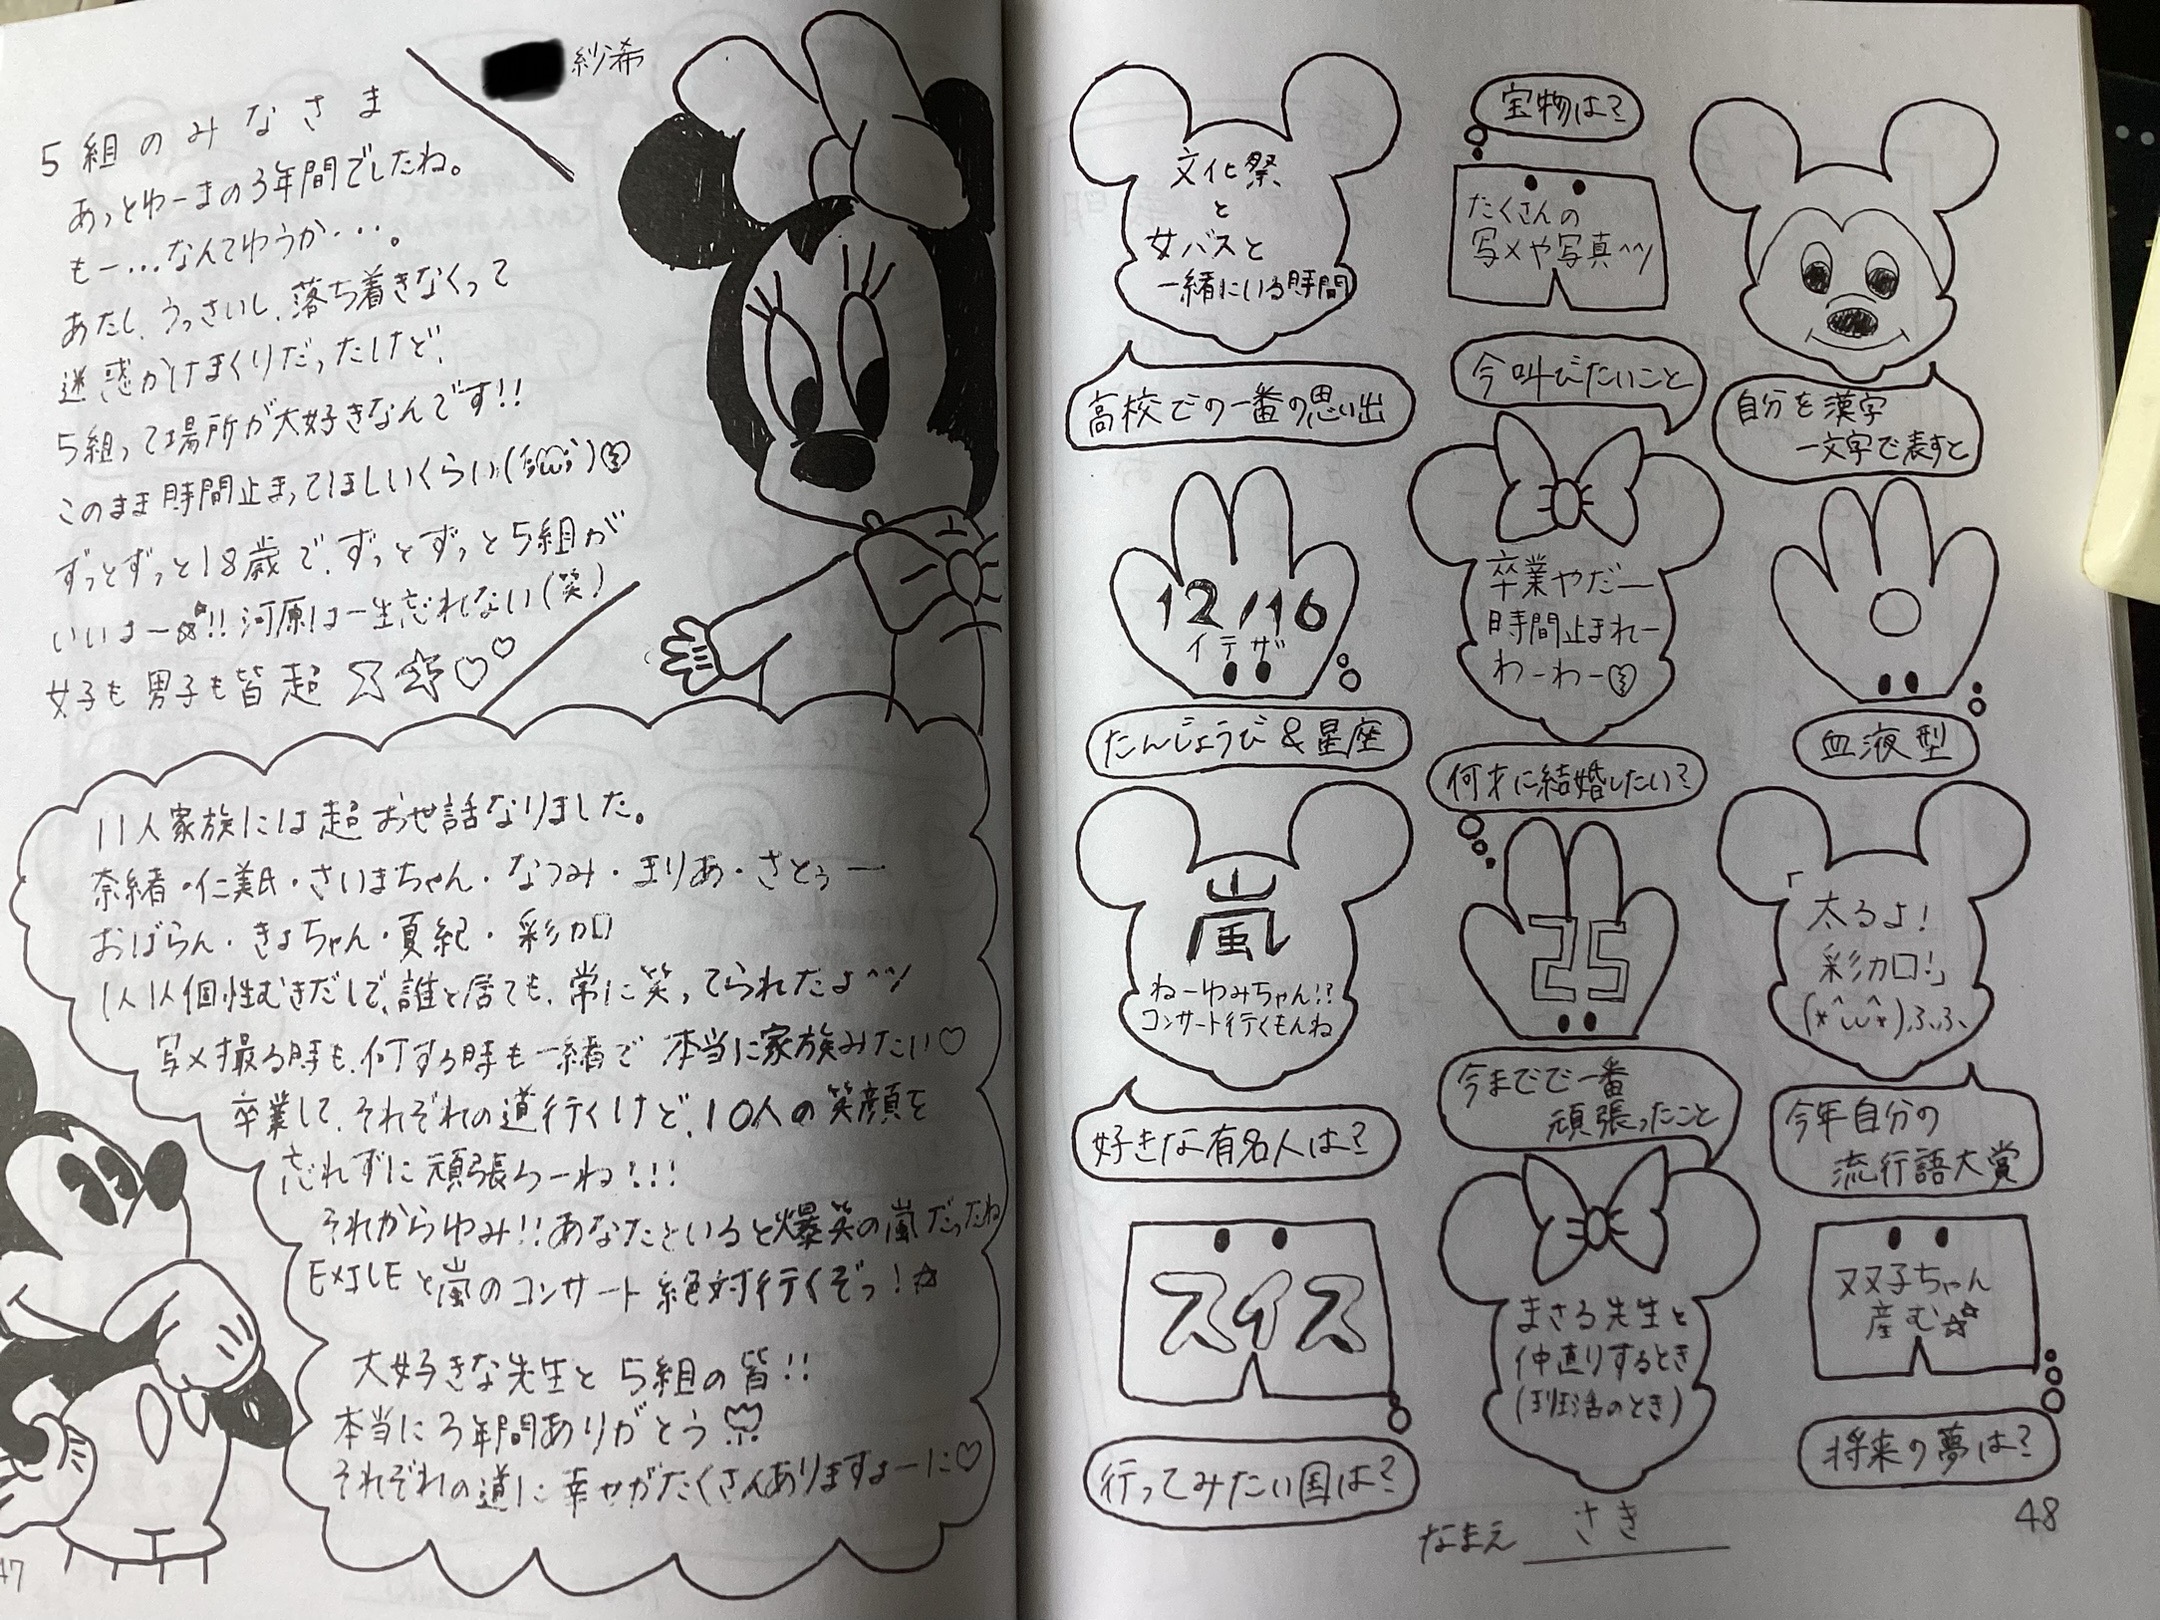 紗希
5組のみなさま
あっとゆーまの3年間でしたね。
もー…なんてゆうか…。
あたし、うっさいし、落ち着きなくって
迷惑かけまくりだったけど、
5組って場所が大好きなんです!!
このまま時間止まってほしいくらい
ずっとずっと18歳で、ずっとずっと5組が
いいよー☆!!河原は一生忘れない(笑)
女子も男子も皆超 ☆♡♡
11人家族には超お世話なりました。
奈緒・仁美氏・さいまちゃん・なつみ・まりあ・さとぅー
おばらん・きょちゃん・夏紀・彩カロ
1人1人個性むきだしで、誰と居ても、常に笑ってられたよ^ツ
写メ撮る時も、何する時も一緒で 本当に家族みたい♡
卒業して、それぞれの道行くけど、10人の笑顔を
忘れずに頑張ろーね!!!
それからゆみ!!あなたといると爆笑の嵐だったね
EXILEと嵐のコンサート絶対行くぞっ!☆
大好きな先生と5組の皆!!
本当に3年間ありがとう
それぞれの道に幸せがたくさんありますよーに♡
47
文化祭
と
女バスと
一緒にいる時間
高校での一番の思い出
宝物は?
たくさんの
写メや写真^^ツ
自分を漢字
一文字で表すと
今叫びたいこと
卒業やだー
時間止まれー
わーわー
12/16
イテザ
たんじょうび&星座
○
血液型
嵐
ねーゆみちゃん!?
コンサート行くもんね
好きな有名人は?
何才に結婚したい?
25
「太るよ!
彩カロ!」
(*^ω^*)ふふ、
今年自分の
流行語大賞
今までで一番
頑張ったこと
まさる先生と
仲直りするとき
(班活のとき)
スイス
行ってみたい国は?
双子ちゃん
産む☆
将来の夢は?
なまえ さき
48